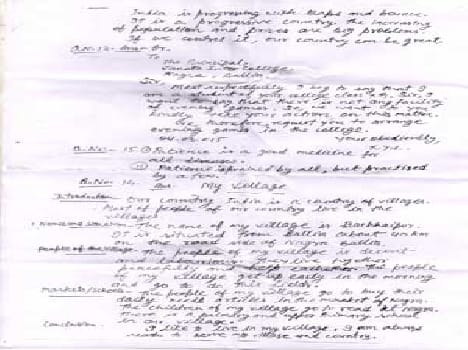 India is progressing with leaps and bounce.
It is a progressive country the increasing
of population and prices are big problems.
If we control it, our country can be great
To
The Principal,
College
Nagra, Ballia
Sir,
Most respectfully I beg to say that I
am a student of your college class Sir, I
want to say that there is not any facility
of evening games. So, we want you
kindly take your action on this matter.
So therefore request you to arrange
evening games in the college.
Your obediently,
X.Y.Z.
15 Patience is a good medicine for
all diseases.
Patience praised by all, but practised
by a few.
My Village
Introduction Our country India is a country of villages.
Most of people of our country live in the
villages
The name of my village is
It is situated from Ballia about
on the road side of Nagra Ballia.
People of the village The people of my village is
They live together
peacefully the people
of my village get up early in the morning
and go to do
The people of my village go to buy their
daily need articles in the market of Nagra.
The children of my village go to read at Nagra.
There is a primary and upper primary school
in our village.
Conclusion I like to live in my village. I am always
ready to serve my village and country.